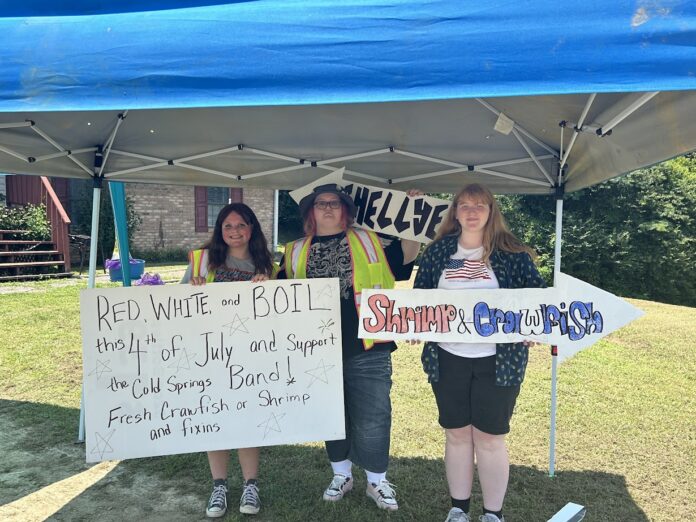 HELLYE
RED, WHITE, and BOIL
this 4th of July and Support
the Cold Springs Band!
Fresh Crawfish or Shrimp
and fixins
Shrimp & Crawfish